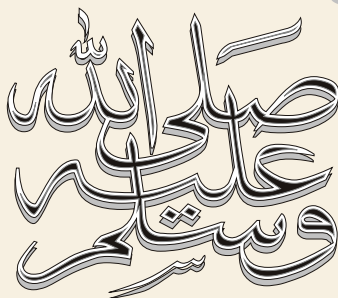 صَلى الله
عليه
وسلم